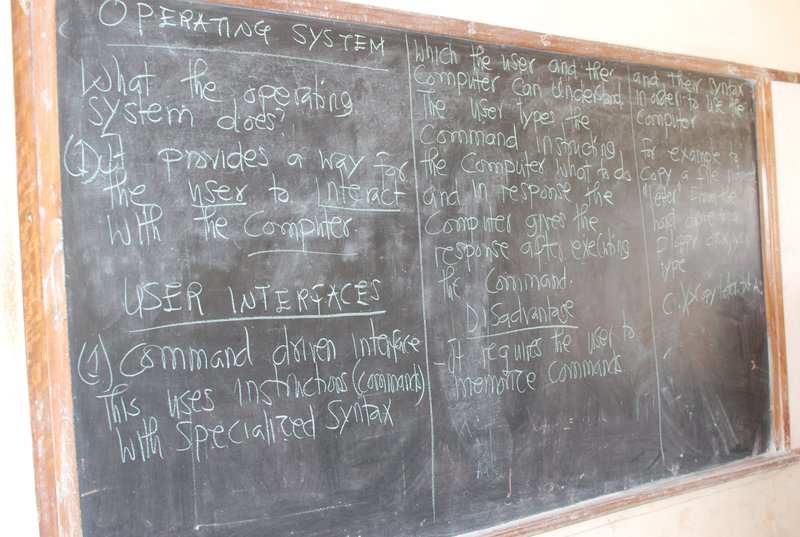 OPERATING SYSTEM
What the operating
system does?
(1) It provides a way for
the user to interact
with the Computer.
USER INTERFACES
(1) Command driven Interface
This uses instructions (commands)
with specialized syntax
which the user and the
Computer can understand.
The user types the
Command instructing
the Computer what to do
and in response the
Computer gives the
response after executing
the Command.
Disadvantage
- It requires the user to
memorize commands
and their syntax
in order to use the
Computer
For example to
Copy a file named
"letter" from the
hard drive to a
floppy disk, you
type
C:\>Copy letter.txt